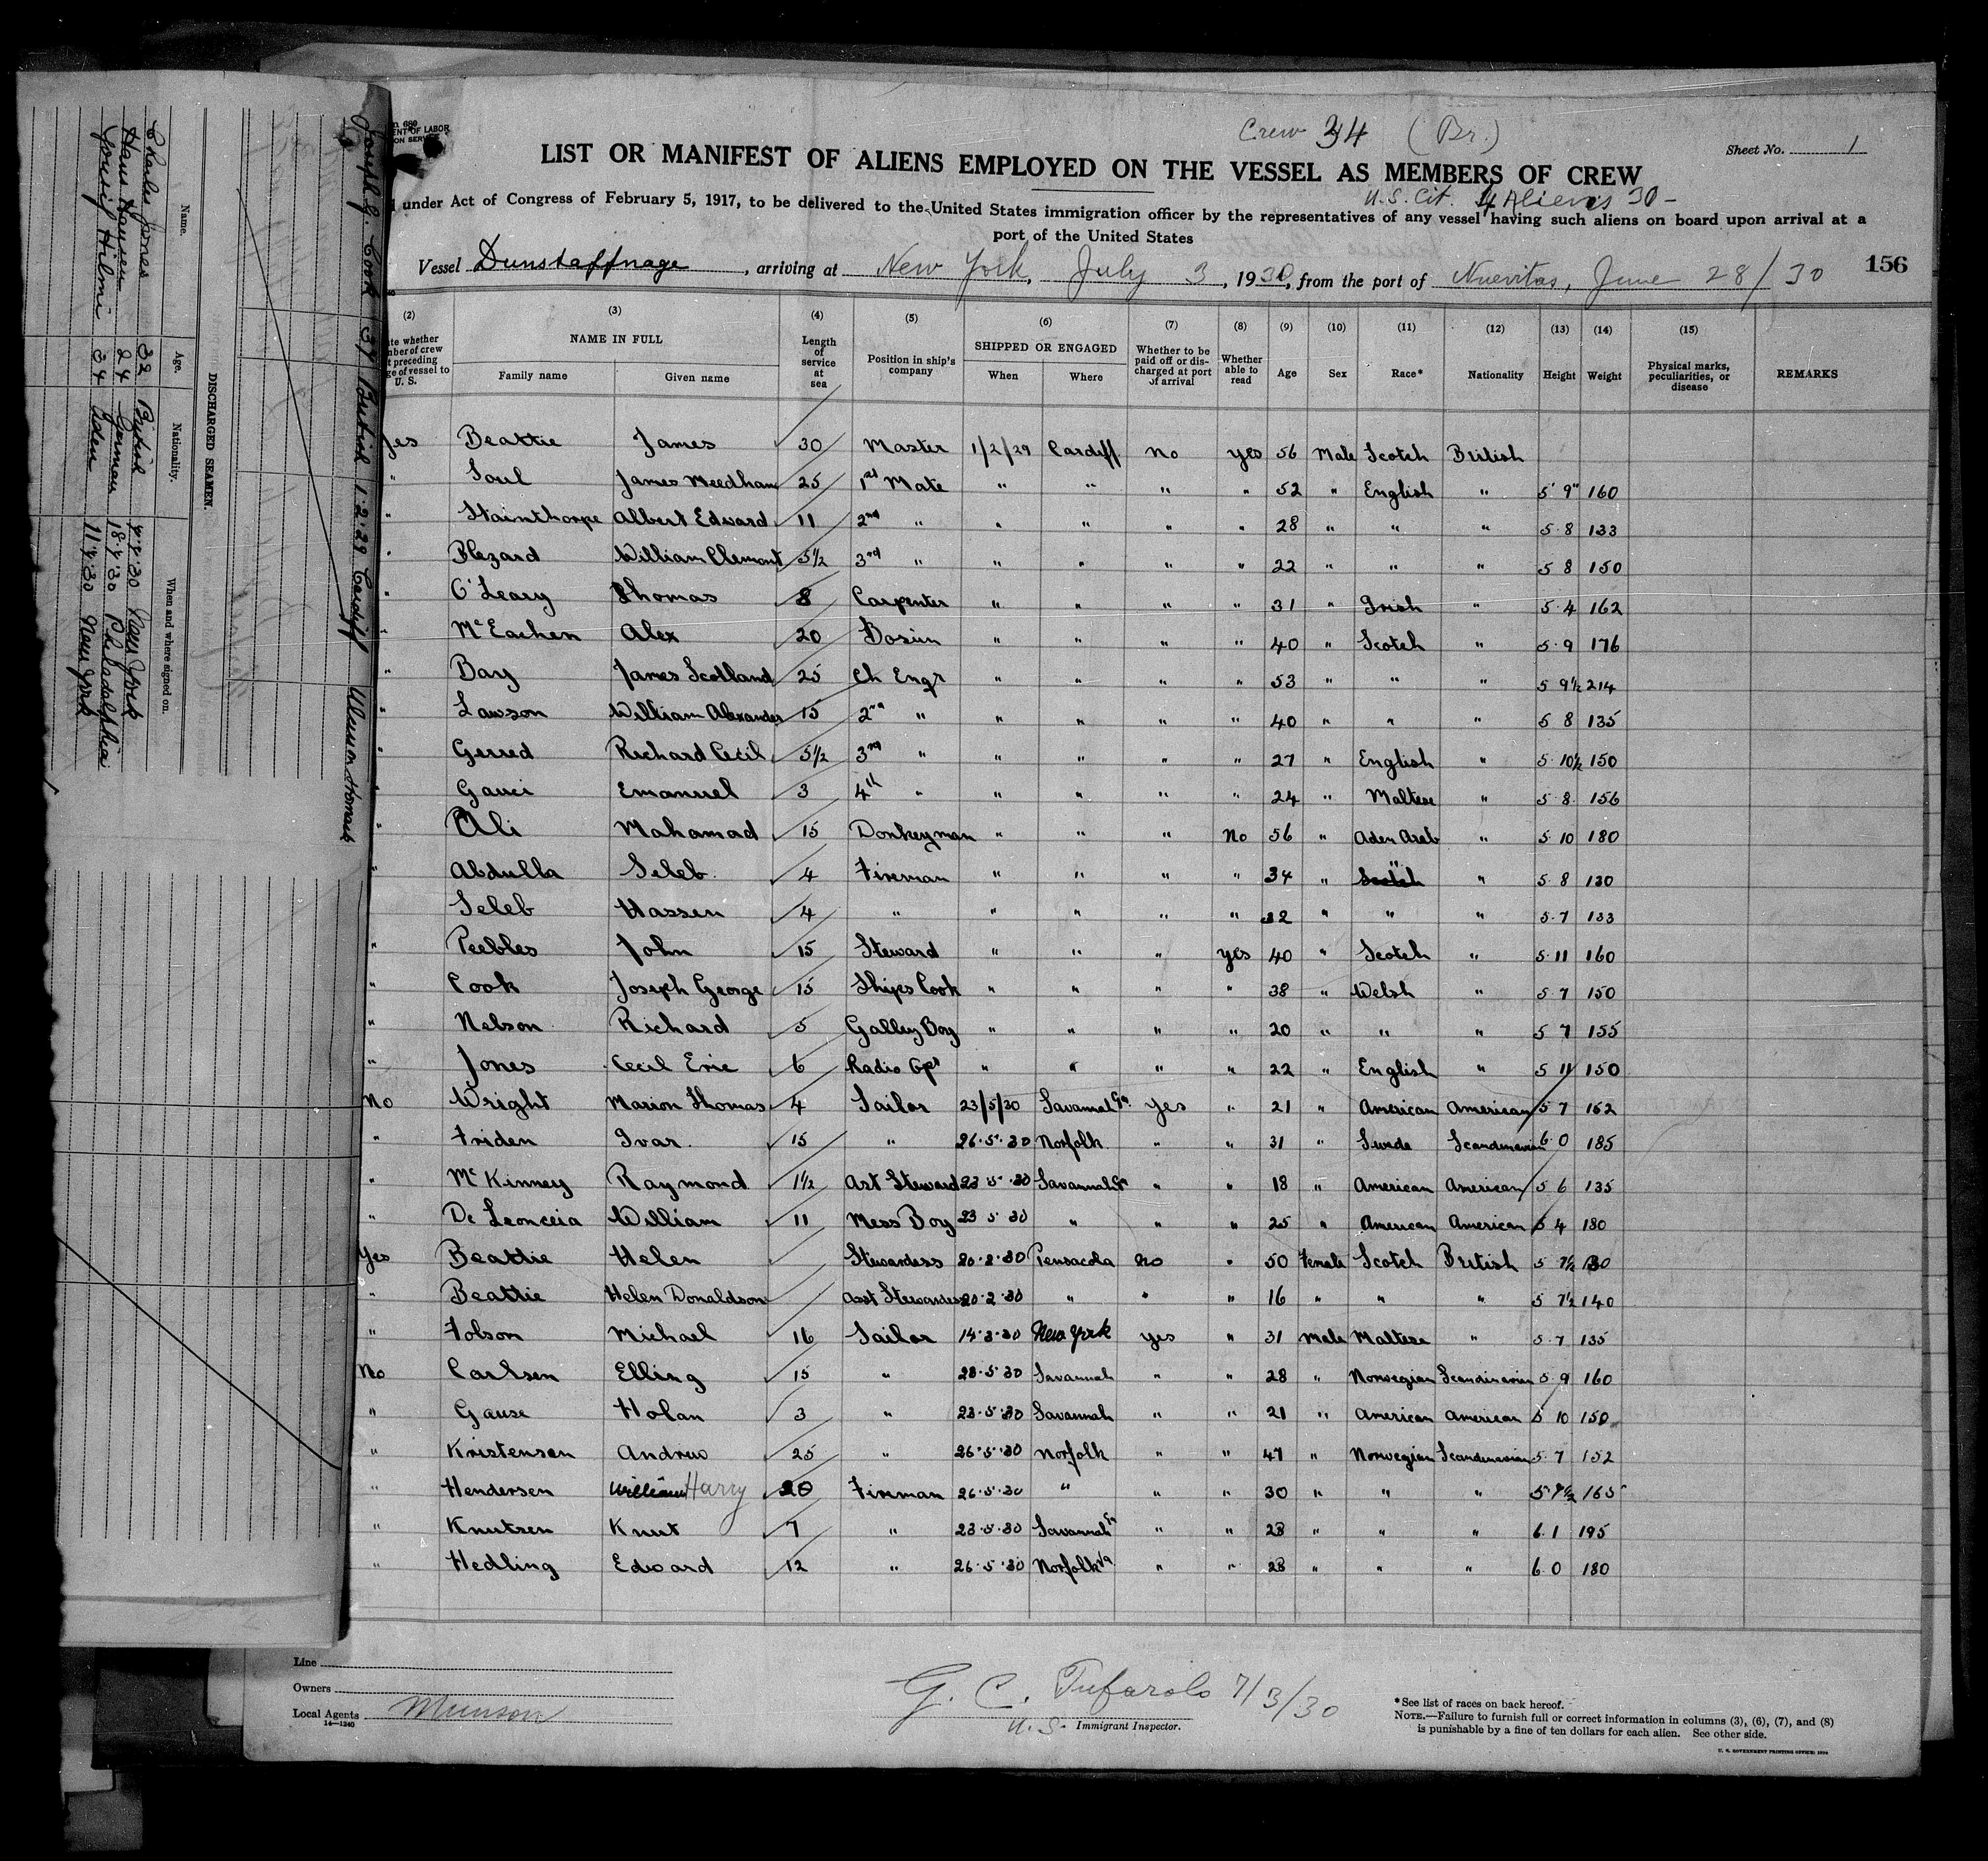 Crew 34 (Br.)
n 680
ENT OF LABOR
ON SERVICE
Sheet No. 1
LIST OR MANIFEST OF ALIENS EMPLOYED ON THE VESSEL AS MEMBERS OF CREW
U.S. Cit. 4 Aliens 30 -
under Act of Congress of February 5, 1917, to be delivered to the United States immigration officer by the representatives of any vessel having such aliens on board upon arrival at a
port of the United States
Vessel Dunstaffnage, arriving at New York, July 3, 1930, from the port of Nuevitas, June 28/30 156
(2) (3) (4) (5) (6) (7) (8) (9) (10) (11) (12) (13) (14) (15)
te whether mber of crew t preceding ge of vessel to U. S. NAME IN FULL Family name Given name Length of service at sea Position in ship's company SHIPPED OR ENGAGED When Where Whether to be paid off or discharged at port of arrival Whether able to read Age Sex Race* Nationality Height Weight Physical marks, peculiarities, or disease REMARKS
Yes Beattie James 30 Master 1/2/29 Cardiff No yes 56 Male Scotch British
" Soul James Needham 25 1st Mate " " " " 52 " English " 5' 9" 160
" Stainthorpe Albert Edward 11 2nd " " " " " 28 " " " 5 8 133
" Blezard William Clement 5½ 3rd " " " " " 22 " " " 5 8 150
" O'Leary Thomas 8 Carpenter " " " " 31 " Irish " 5.4 162
" McEachen Alex 20 Bosun " " " " 40 " Scotch " 5.9 176
" Bary James Scotland 25 Ch Engr " " " " 53 " " " 5 9½ 214
" Lawson William Alexander 15 2nd " " " " " 40 " " " 5 8 135
" Gerred Richard Cecil 5½ 3rd " " " " " 27 " English " 5.10½ 150
" Gauci Emanuel 3 4th " " " " " 24 " Maltese " 5 8 156
" Ali Mahamad 15 Donkeyman " " " No 56 " Aden Arab " 5.10 180
" Abdulla Seleb 4 Fireman " " " " 34 " Scotch " " 5.8 130
Seleb Hassen 4 " " " " " 32 " " " 5.7 133
" Peebles John 15 Steward " " " yes 40 " Scotch " 5.11 160
" Cook Joseph George 15 Ships Cook " " " " 38 " Welsh " 5 7 150
" Nelson Richard 5 Galley Boy " " " " 20 " " " 5 7 155
" Jones Cecil Eric 6 Radio Opr " " " " 22 " English " 5 11 150
No Wright Marion Thomas 4 Sailor 23/5/30 Savannah Ga. Yes " 21 " American American 5 7 162
" Friden Ivar 15 " 26.5.30 Norfolk " " 31 " Swede Scandinavian 6.0 185
" McKinney Raymond 1½ Ast Steward 23 5 30 Savannah Ga " " 18 " American American 5 6 135
" De Leonceia William 11 Mess Boy 23 5 30 " " " 25 " American American 5 4 180
Yes Beattie Helen Stewardess 20.2.30 Pensacola No " 50 Female Scotch British 5 7½ 130
" Beattie Helen Donaldson Asst Stewardess 20.2.30 " " " 16 " " " 5 7½ 140
" Fobson Michael 16 Sailor 14.3.30 New York yes " 31 Male Maltese " 5.7 135
No Carlsen Elling 15 " 23.5.30 Savannah " " 28 " Norwegian Scandinavian 5.9 160
" Gause Holan 3 " 23.5.30 Savannah " " 21 " American American 5 10 150
" Kristensen Andrew 25 " 26.5.30 Norfolk " " 47 " Norwegian Scandinavian 5.7 152
" Hendersen William Harry 20 Fireman 26.5.30 " " " 30 " " " 5.7½ 165
" Knutsen Knut 7 " 23.5.30 Savannah Ga " " 28 " " " 6.1 195
" Hedling Edward 12 " 26.5.30 Norfolk Va " " 28 " " " 6.0 180
Line
Owners
Local Agents Munson
14—1240
G. C. Tufarolo 7/3/30
U. S. Immigrant Inspector.
*See list of races on back hereof.
NOTE.—Failure to furnish full or correct information in columns (3), (6), (7), and (8)
is punishable by a fine of ten dollars for each alien. See other side.
U. S. GOVERNMENT PRINTING OFFICE: 1929
Joseph G. Cook 37 British 1.2.29 Cardiff
DISCHARGED SEAMEN.
Name. Age. Nationality. When and where signed on.
Charles Jones 32 British 4.4.30 New York
Hans Hansen 24 German 18.4.30 Philadelphia
Yousif Hilmi 34 Aden 11.4.30 New York